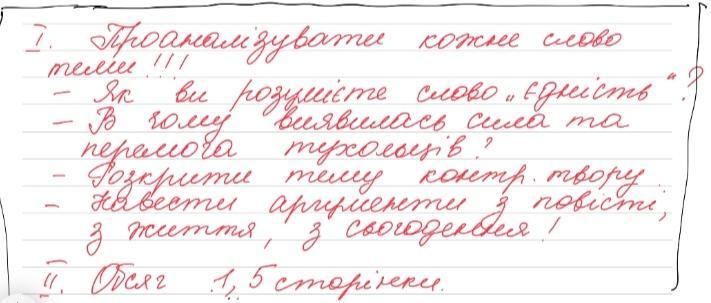 I. Проаналізувати кожне слово
теми!!!
- Як ви розумієте слово „Єдність"?
- В чому виявилась сила та
перемога тухольців?
- Розкрити тему контр. твору.
- Навести аргументи з повісті,
з життя, з сьогодення!
II. Обсяг 1,5 сторінки.